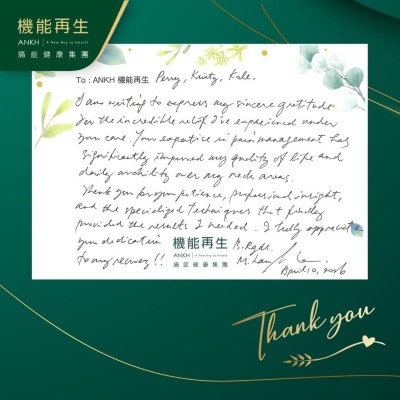 機能再生
ANKH | A New Key to Health
痛症健康集團
To : ANKH 機能再生 Perry, Kristy, Kale.
I am writing to express my sincere gratitude
for the incredible relief I've experienced under
your care. Your expertise in pain management has
significantly improved my quality of life and
daily mobility over my neck areas.
Thank you for your patience, professional insight,
and the specialized techniques that finally
provided the results I needed. I truly appreciate
your dedication
to my recovery!!
機能再生
ANKH | A New Key to Health
痛症健康集團
April 10, 2026
Thank you